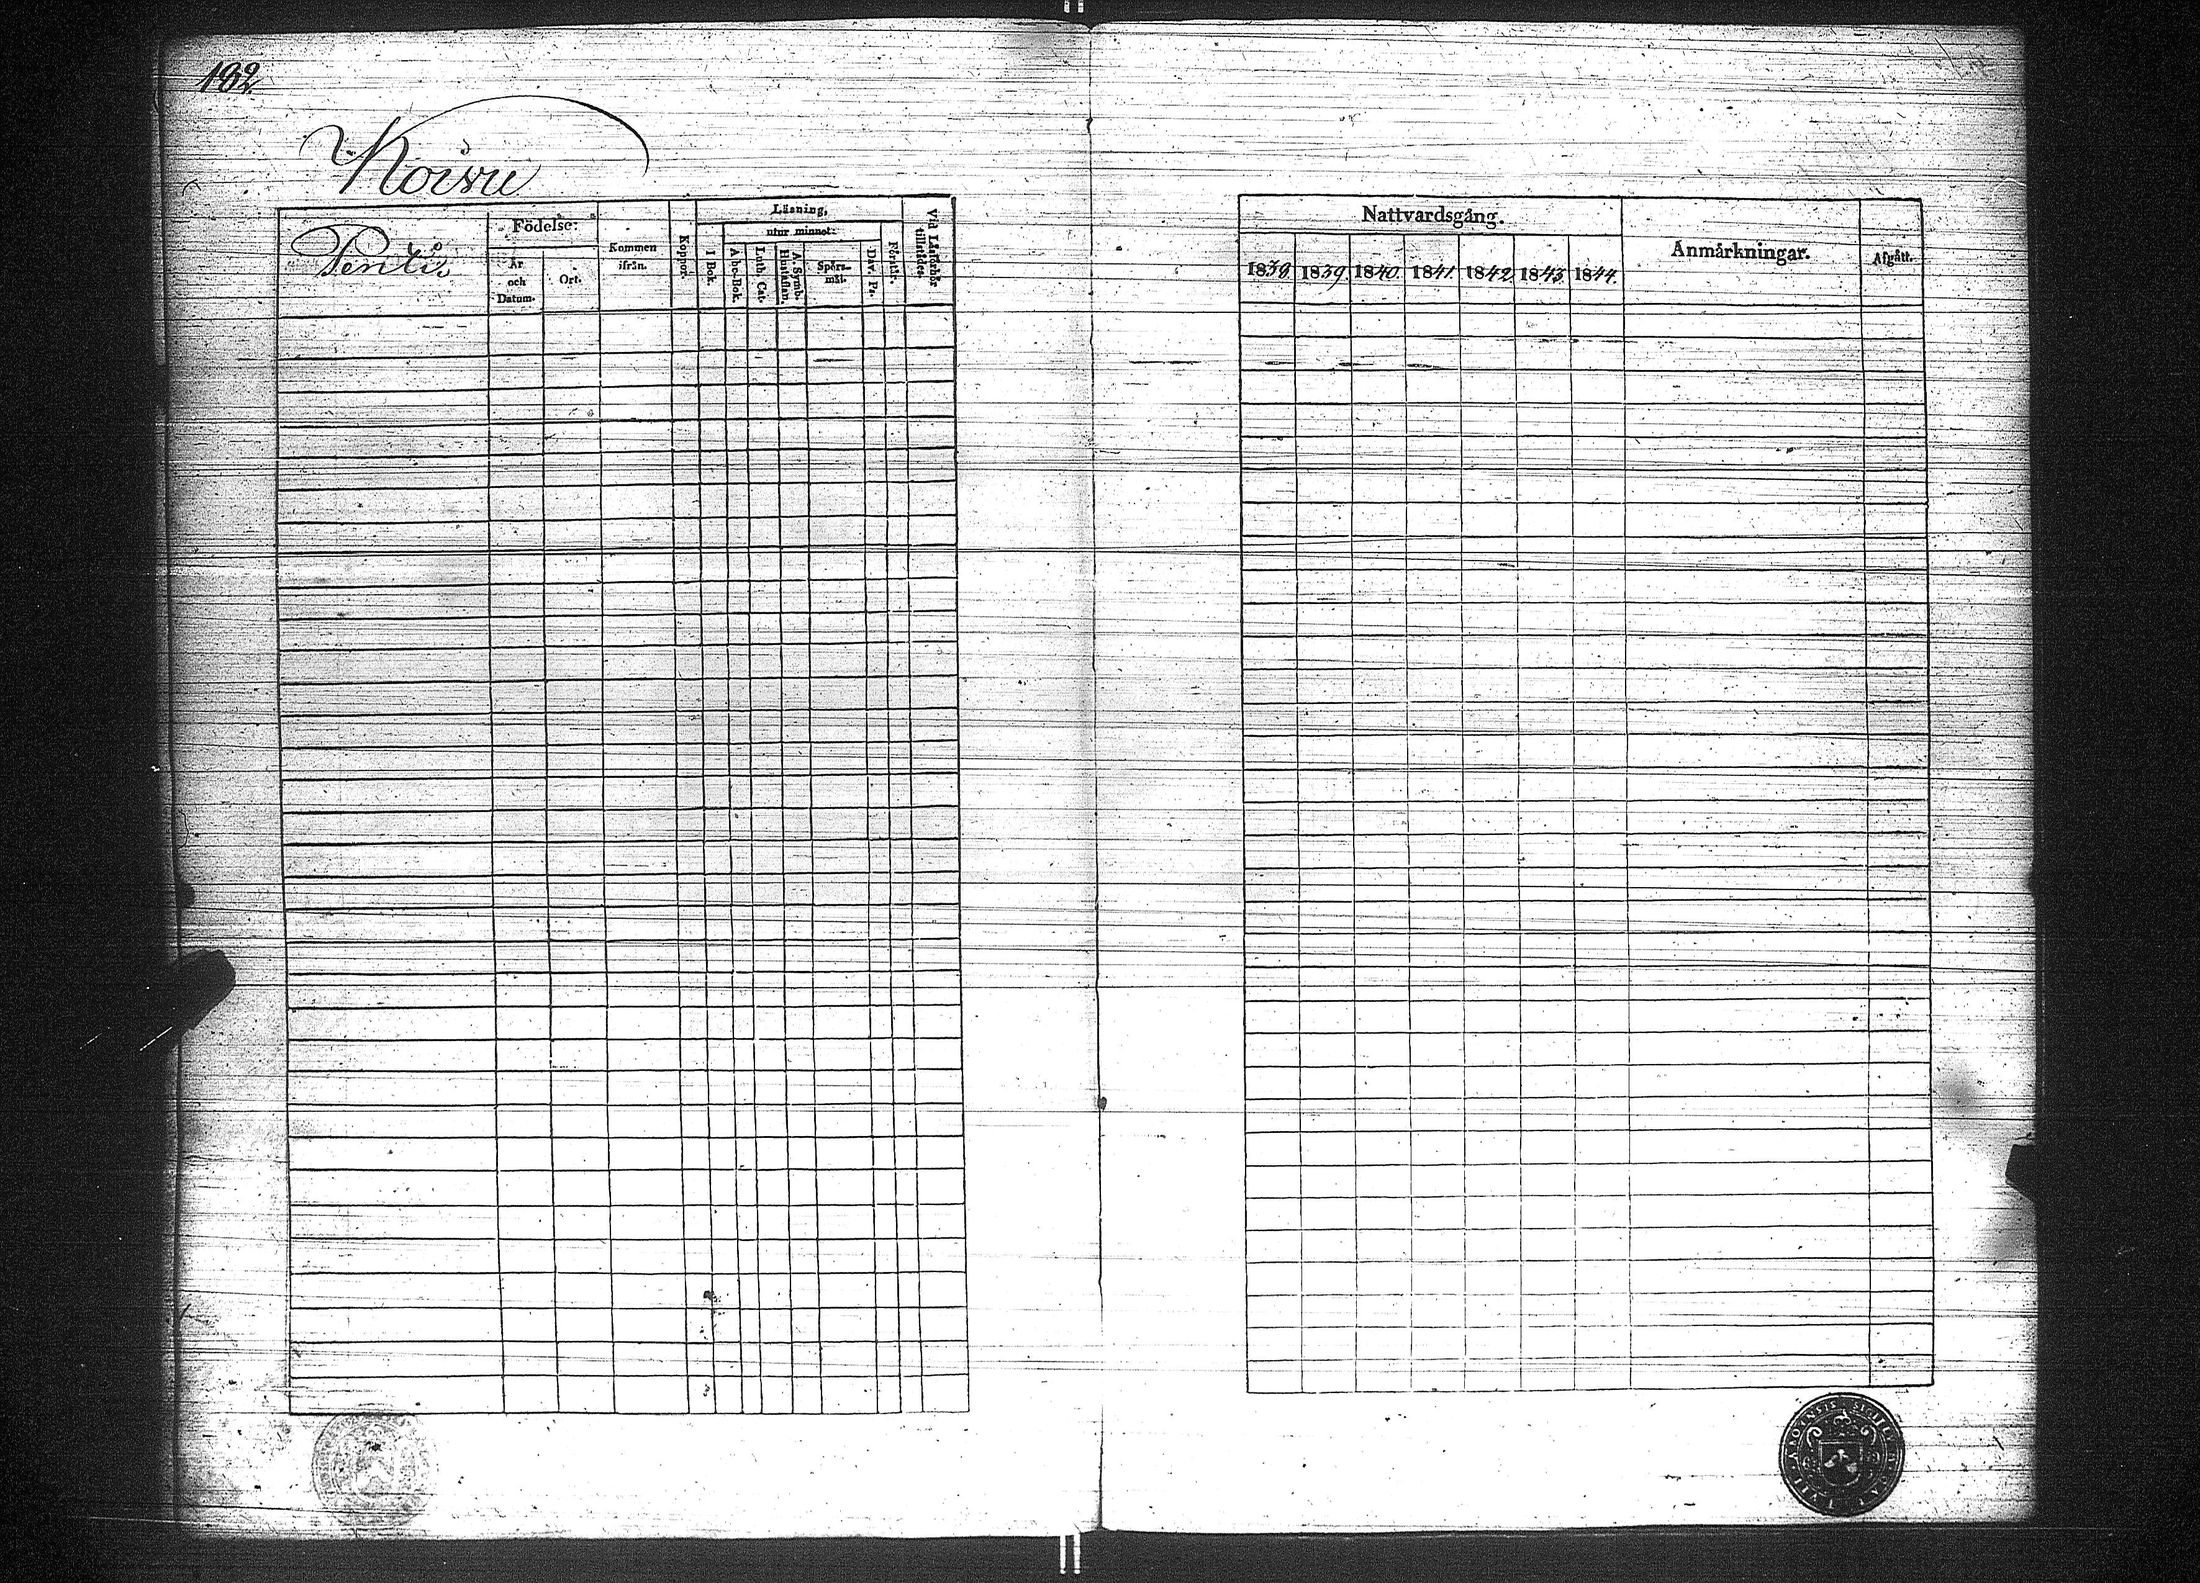 182.
Koivu
Pentti
Födelse:
År och Datum.
Ort.
Kommen ifrån.
Koppor.
Läsning,
utur minnet:
I Bok.
Abc-Bok.
Luth. Cat.
Hustaflan.
A. Symb.
Spörsmål.
Dav. Ps.
Förstår.
Vid Läsförhör tillstädes.
Nattvardsgång.
1838 1839. 1840. 1841. 1842. 1843. 1844.
Anmärkningar.
Afgått.